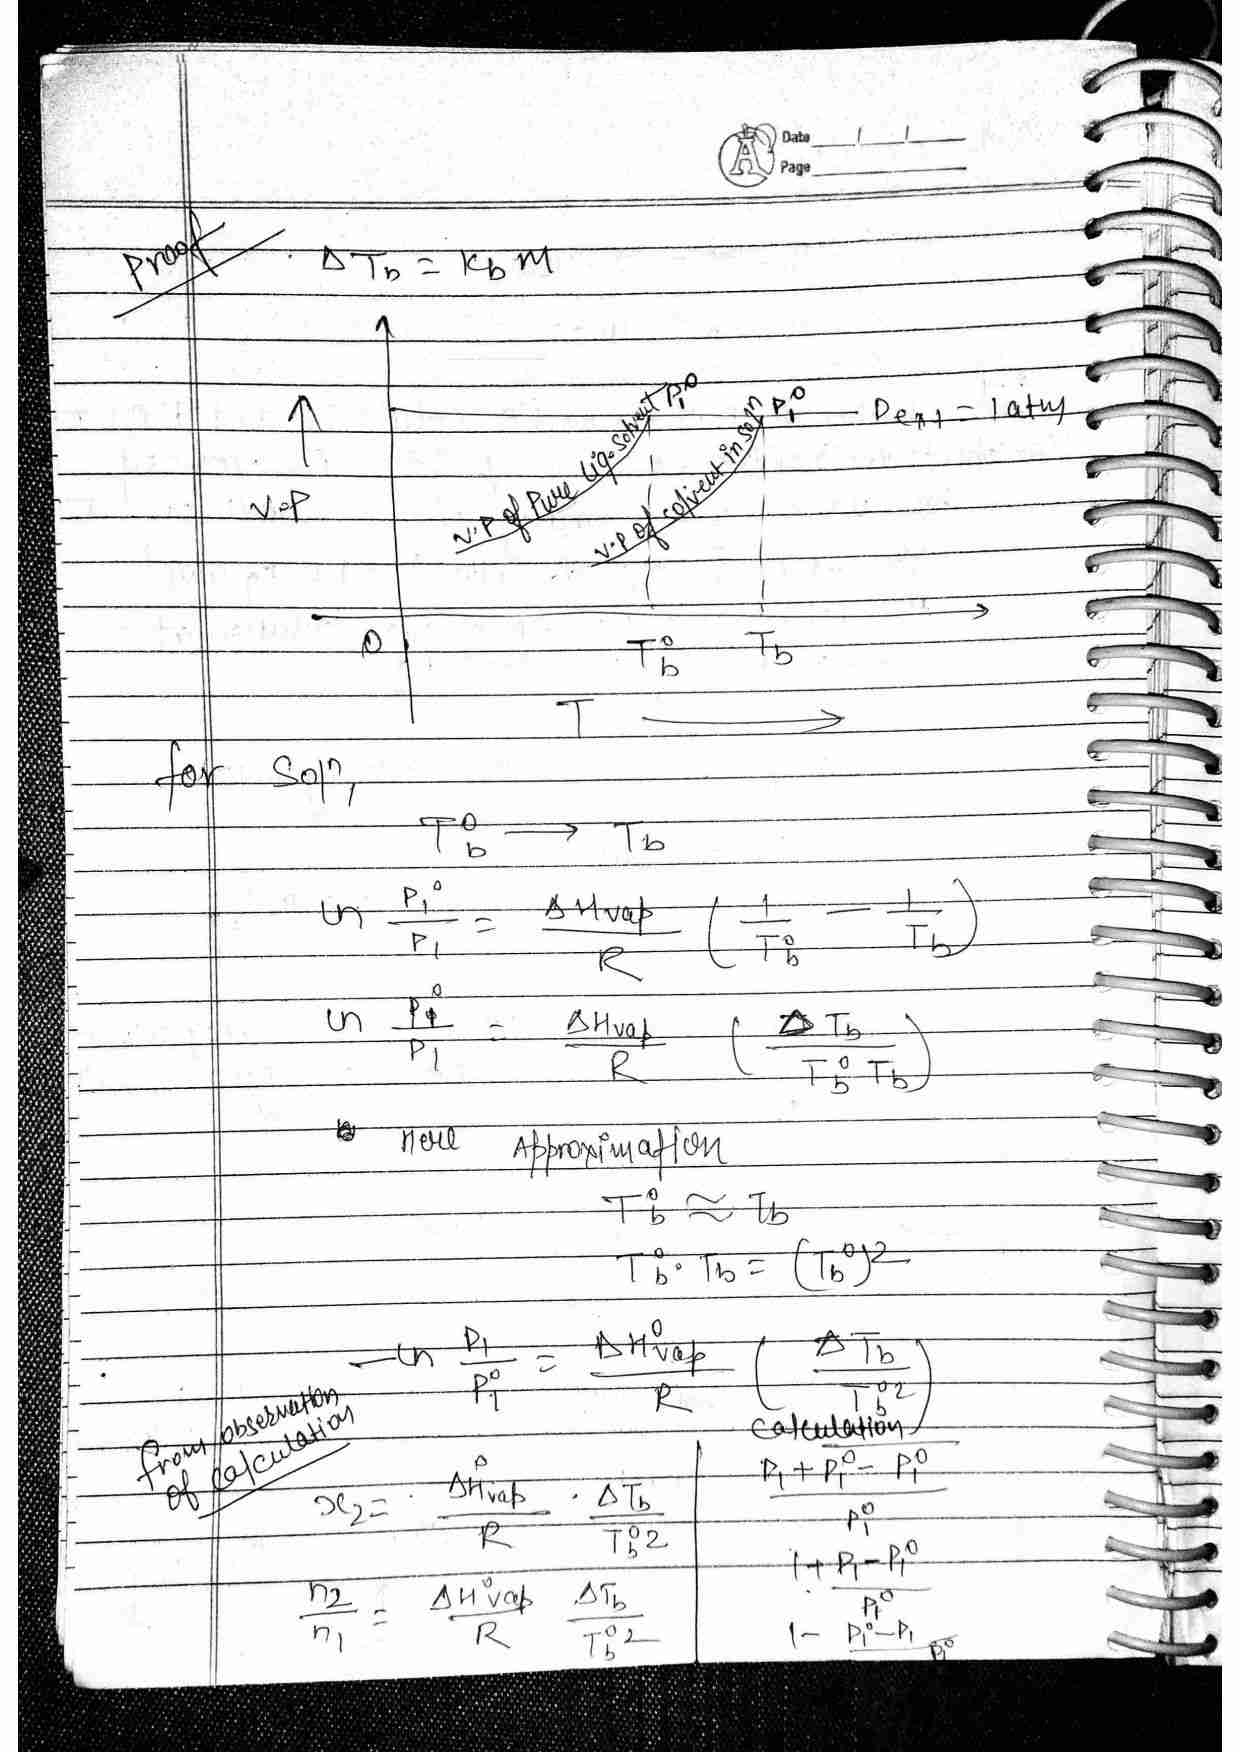 Date
Page
Proof
ΔT_b = K_b M
V.P of Pure Liq. Solvent P₁⁰
V.P of Solvent in soln P₁⁰
P_ext = 1 atm
V.P
O
T_b⁰ T_b
T →
for Solⁿ,
T_b⁰ → T_b
ln P₁⁰/P₁ = ΔHvap/R (1/T_b⁰ − 1/T_b)
ln P₁⁰/P₁ = ΔHvap/R (ΔT_b/T_b⁰ T_b)
Here Approximation
T_b⁰ ≈ T_b
T_b⁰. T_b = (T_b⁰)²
−ln P₁/P₁⁰ = ΔH⁰vap/R (ΔT_b/T_b⁰²)
from observation
of calculation
x₂ = ΔH⁰vap/R . ΔT_b/T_b⁰²
n₂/n₁ = ΔH⁰vap/R ΔT_b/T_b⁰²
Calculation
P₁ + P₁⁰ − P₁⁰/P₁⁰
1 + P₁ − P₁⁰/P₁⁰
1 − P₁⁰ − P₁/P₁⁰